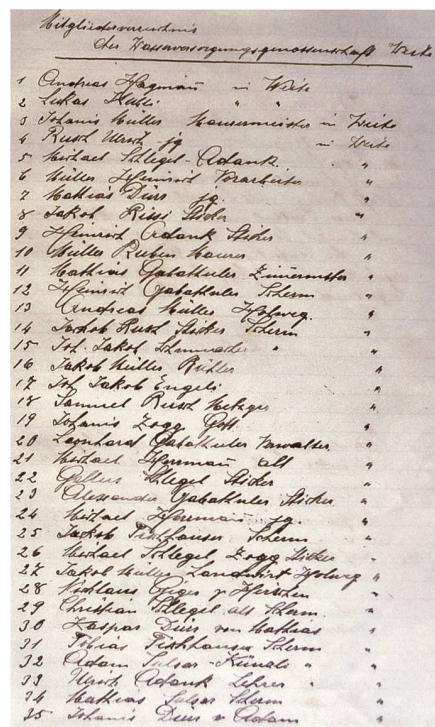 Mitgliederverzeichnis
der Wasserversorgungsgenossenschaft Weite
1 Andreas Hagmañ in Weite
2 Lukas " "
3 Johanis Müller Mausermeister in Weite
4 Rusch Ulrich jg. in Weite
5 Michael Schlegel-Adank "
6 Müller Heinrich Vorarbeiter "
7 Mathias Dürr jg. "
8 Jakob Rissi Sticker "
9 Heinrich Adank Sticker "
10 Müller Ruben Maurer "
11 Mathias Gabathuler Zim̃ermstr "
12 Heinrich Gabathuler Scherm "
13 Andreas Müller Holweg "
14 Jakob Rusch Sticker Scherm "
15 Joh. Jakob Schumacher " "
16 Jakob Müller "
17 Joh Jakob Engeli "
18 Samuel Rusch Metzger "
19 Johanis Zogg "
20 Leonhard Gabathuler Verwalter "
21 Michael Herrmañ alt "
22 Schlegel Sticker "
23 Alexander Gabathuler Sticker "
24 Michael Herrmañ jg. "
25 Jackob Tischhauser Scherm "
26 Michael Schlegel Zogg Sticker "
27 Jakob Müller Landwirt Holweg "
28 Niklaus Giger "
29 Christian Schlegel alt Scherm "
30 Kaspar Dürr von Mathias "
31 Tobias Tischhauser Scherm "
32 Adam Sulser-Künzli "
33 Ulrich Adank Lehrer "
34 Mathias Sulser Scherm "
35 Johanis Dürr v Adam "